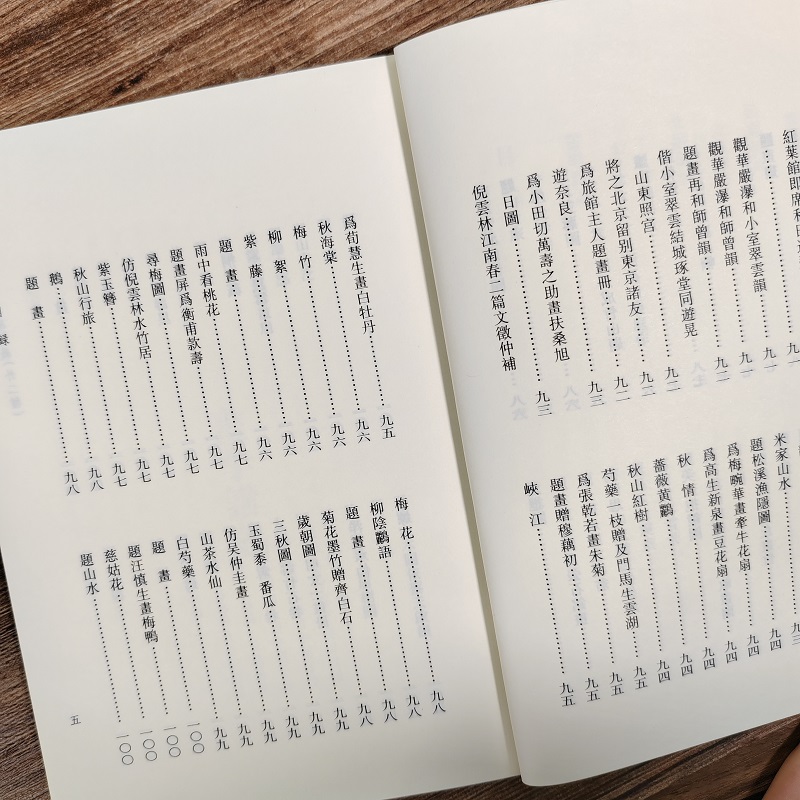 紅葉館即席和
……九一
觀華嚴瀑和小室翠雲韻……九一
觀華嚴瀑和師曾韻……九一
題畫再和師曾韻……九一
偕小室翠雲結城琢堂同遊晃
山東照宫……九二
將之北京留别東京諸友……九二
爲旅館主人題畫冊……九二
遊奈良……九三
爲小田切萬壽之助畫扶桑旭
日圖……九三
倪雲林江南春二篇文徵仲補
米家山水……九三
題松溪漁隱圖……九四
爲梅畹華畫牽牛花扇……九四
爲高生新泉畫豆花扇……九四
秋情……九四
薔薇黄鸝……九四
秋山紅樹……九四
芍藥一枝贈及門馬生雲湖……九五
爲張乾若畫朱菊……九五
題畫贈穆藕初……九五
峽江……九五
爲荀慧生畫白牡丹……九五
秋海棠……九六
梅竹……九六
柳絮……九六
紫藤……九六
題畫……九六
雨中看桃花……九七
題畫屏爲衡甫款壽……九七
尋梅圖……九七
仿倪雲林水竹居……九七
紫玉簪……九七
秋山行旅……九七
……九八
題畫……九八
梅花……九八
柳陰鸝語……九八
題畫……九八
菊花墨竹贈齊白石……九八
歲朝圖……九九
三秋圖……九九
玉蜀黍 番瓜……九九
仿吴仲圭畫……九九
山茶水仙……九九
白芍藥……九九
題畫……一〇〇
題汪慎生畫梅鴨……一〇〇
慈姑花……一〇〇
題山水……一〇〇
五